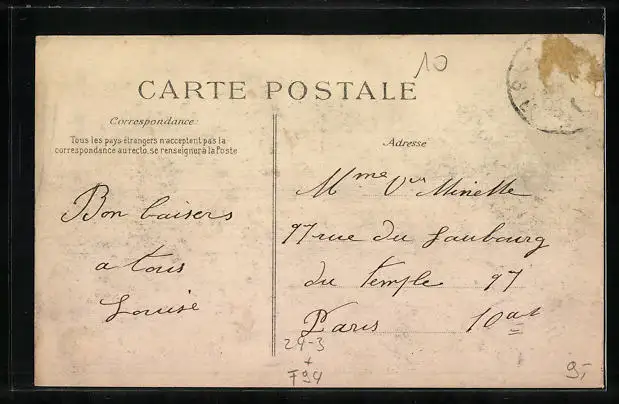 10
CARTE POSTALE
Correspondance:
Tous les pays étrangers n'acceptent pas la
correspondance au recto, se renseigner à la Poste
Adresse
Bon baisers
a tous
Louise
Mme Vve Minelle
97 rue du Faubourg
du temple 97
Paris 10at
24-3
+
F94
9,-